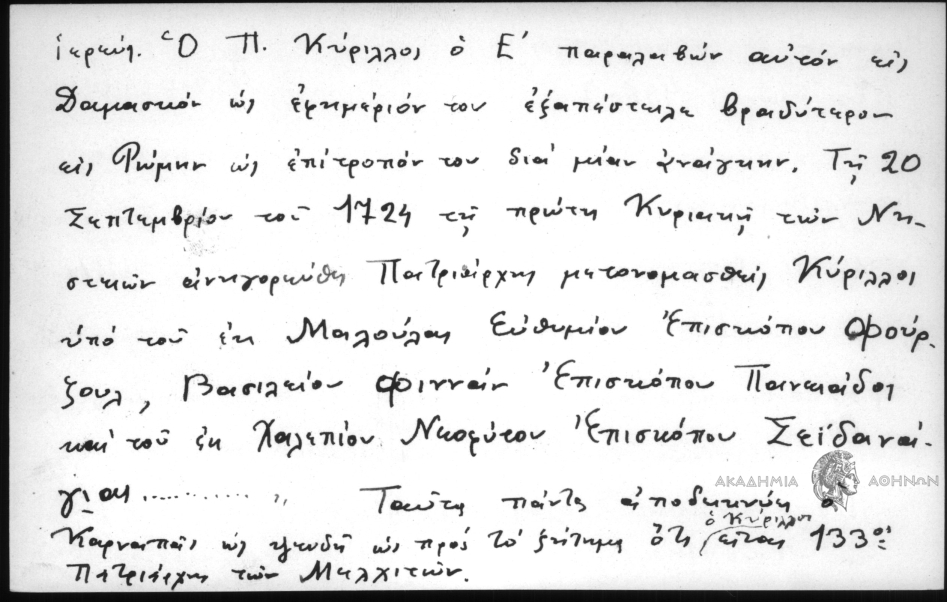 ἱερεύς. Ὁ Π. Κύριλλος ὁ Ε´ παραλαβών αὐτόν εἰς
Δαμασκόν ὡς ἐφημέριόν του ἐξαπέστειλε βραδύτερον
εἰς Ρώμην ὡς ἐπίτροπόν του διά μίαν ἀνάγκην. Τῇ 20
Σεπτεμβρίου τοῦ 1724 τῇ πρώτῃ Κυριακῇ τῶν Νη-
στειῶν ἀνηγορεύθη Πατριάρχης μετονομασθείς Κύριλλος
ὑπό τοῦ ἐκ Μαλούλας Εὐθυμίου Ἐπισκόπου Φούρ-
ζουλ, Βασιλείου Φιννάν Ἐπισκόπου Πανεάδος
καί τοῦ ἐκ Χαλεπίου Νεοφύτου Ἐπισκόπου Σεϊδανά-
γιας ............ „ Ταῦτα πάντα ἀποδεικνύει ὁ
ΑΚΑΔΗΜΙΑ ΑΘΗΝΩΝ
Καρναπᾶς ὡς ψευδῆ ὡς πρός τό ζήτημα ὅτι ὁ Κύριλλος εἶναι 133ος
Πατριάρχης τῶν Μελχιτῶν.